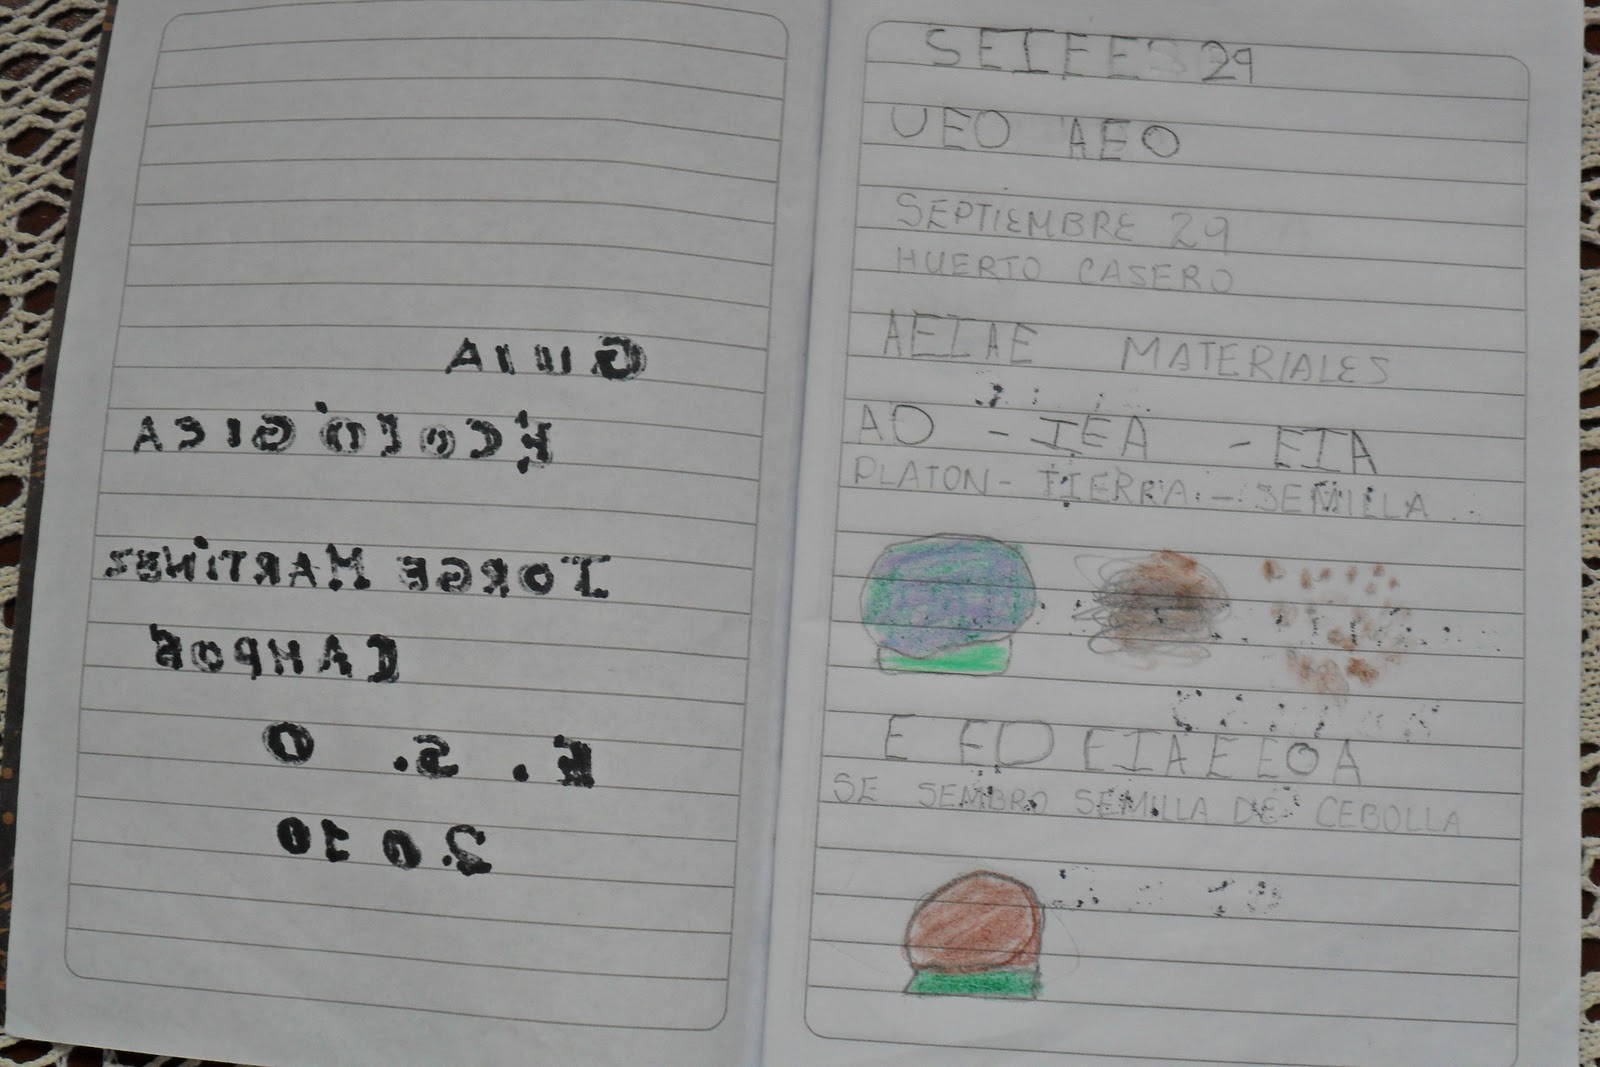 GUIA
ECOLOGICA
JORGE MARTINEZ
E. S. O
2010
SEIEES 29
UEO AEO
SEPTIEMBRE 29
HUERTO CASERO
AEIAE MATERIALES
AO - IEA - EIA
PLATON - TIERRA - SEMILLA
E EO EIAEEOA
SE SEMBRO SEMILLA DE CEBOLLA